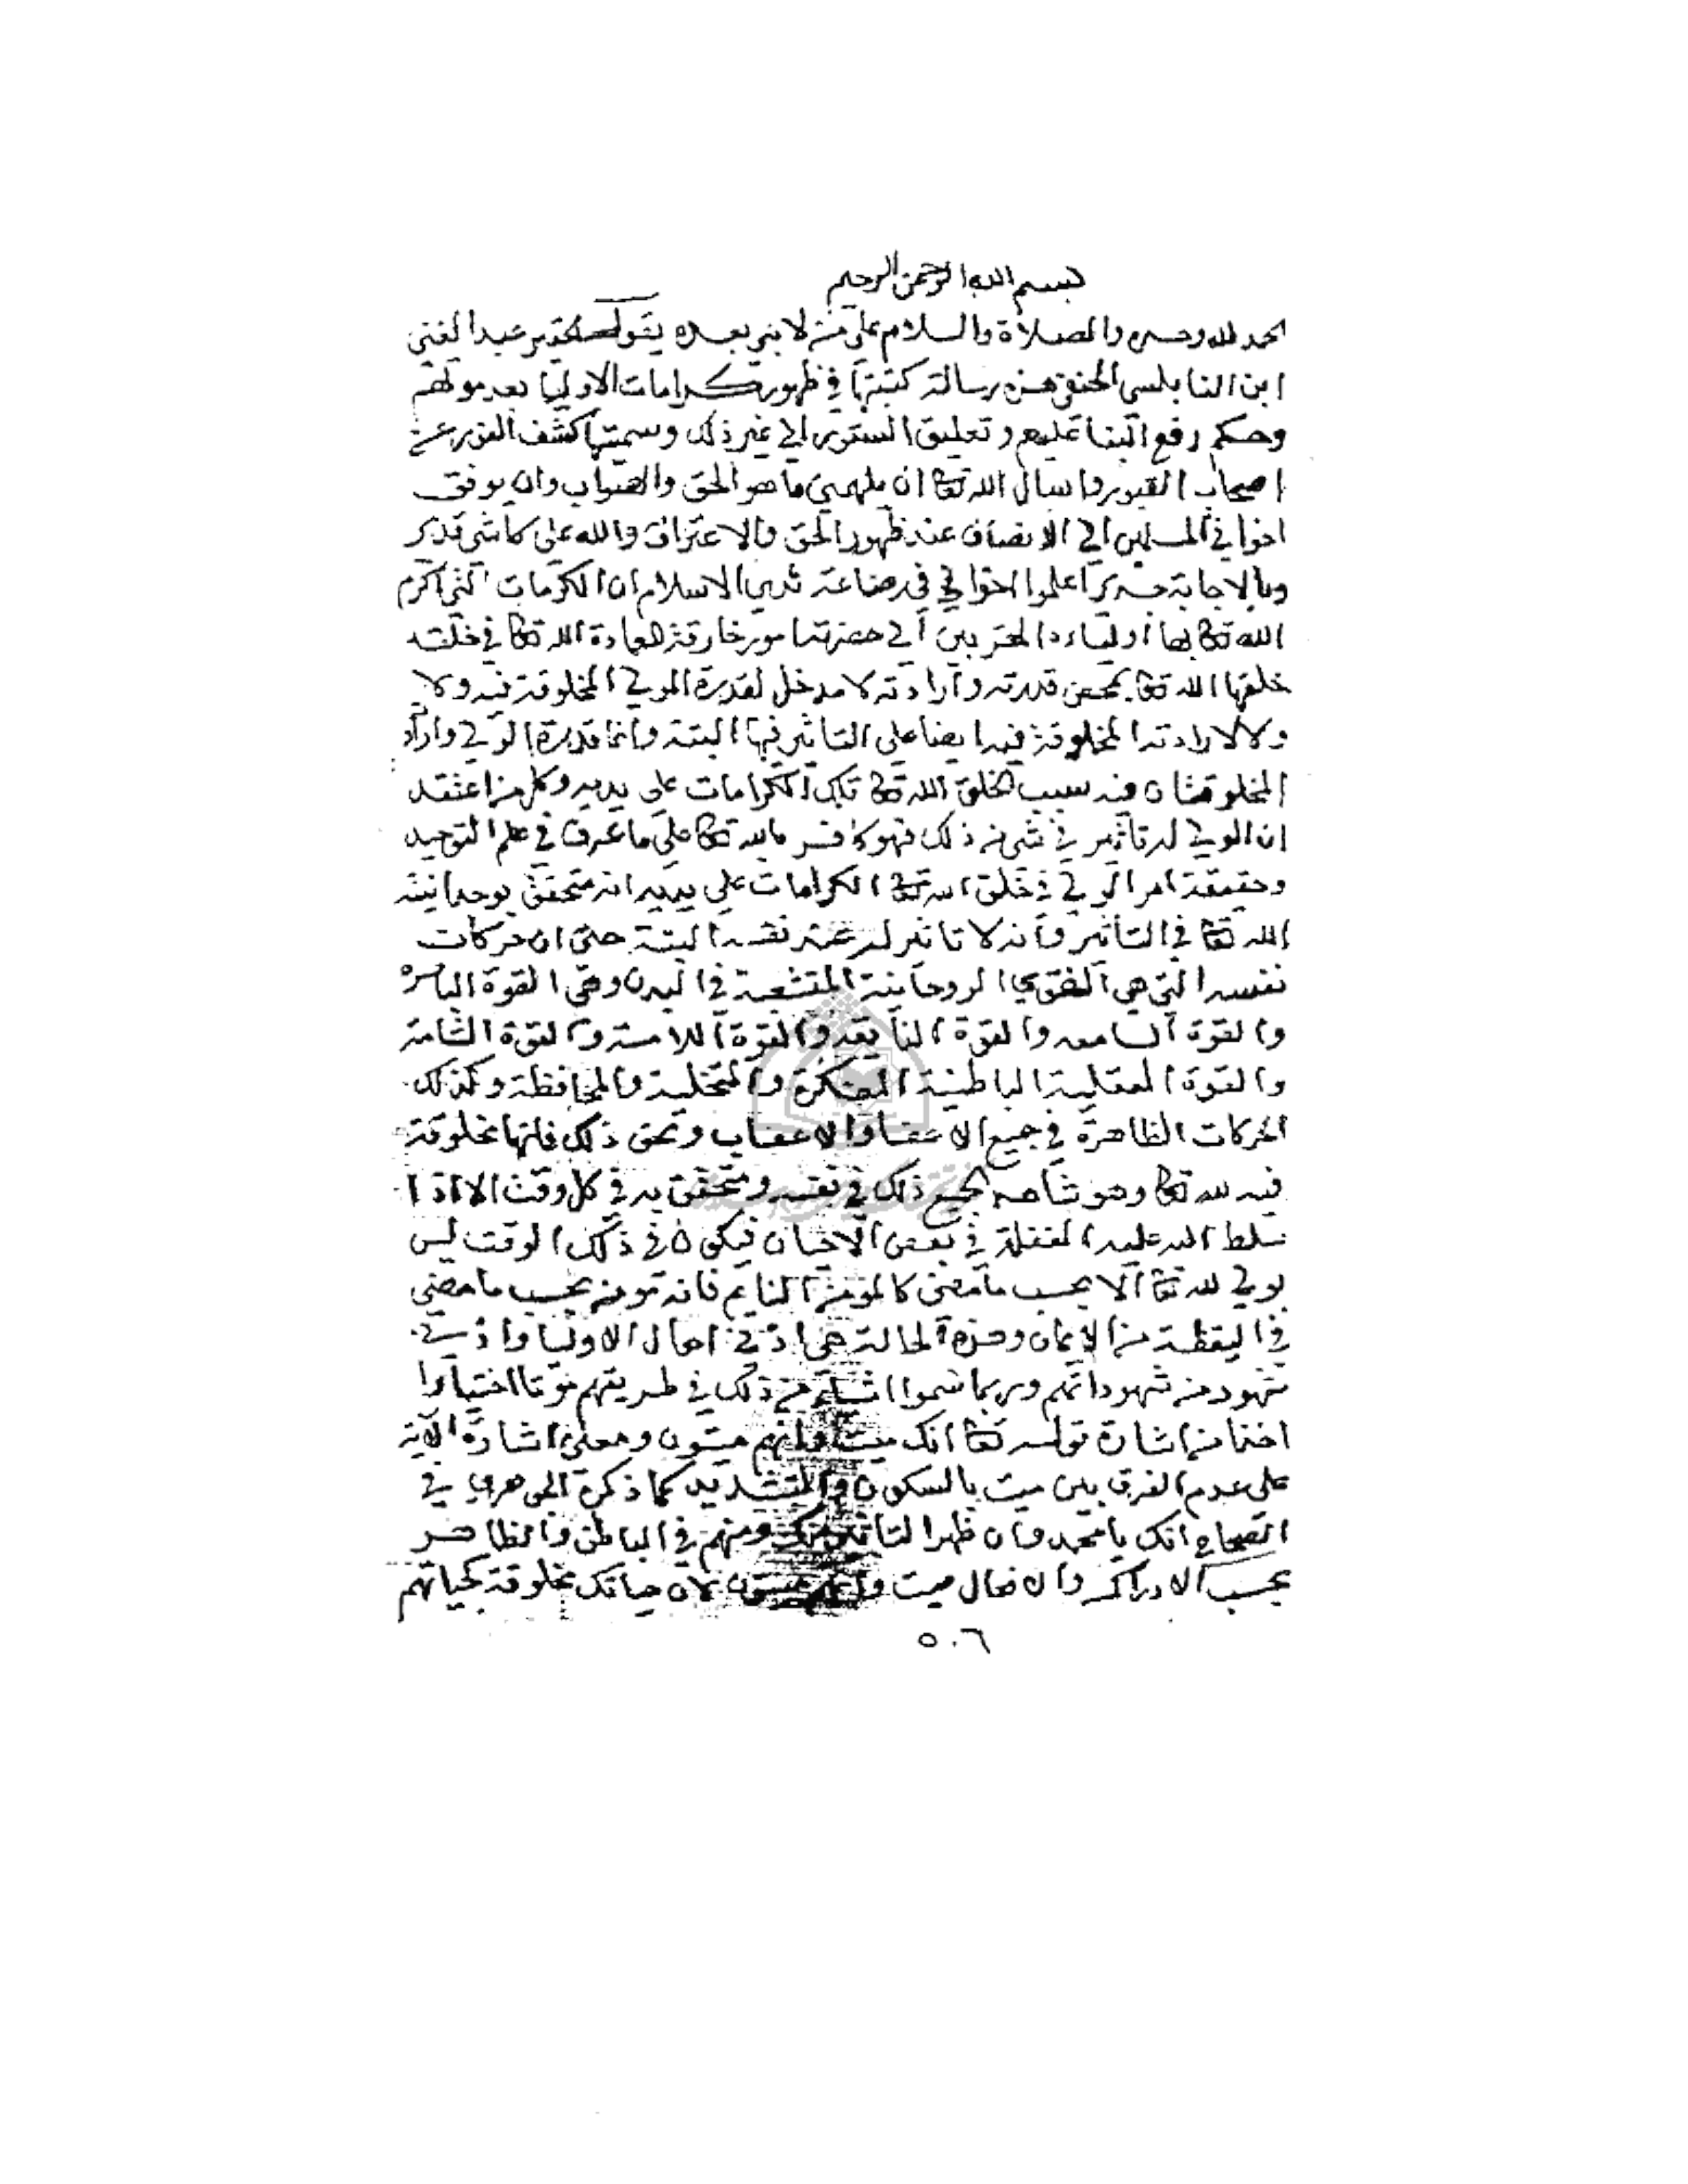 بسم الله الرحمن الرحيم
الحمد لله وحده والصلاة والسلام على من لا نبي بعده يقول الحقير عبد الغني
ابن النابلسي الحنفي هذه رسالة كتبتها في ظهور كرامات الاوليا بعد موتهم
وحكم رفع البنا عليهم وتعليق الستور الي غير ذلك وسميتها كشف النور عن
اصحاب القبور واسال الله تعا ان يلهمني ما هو الحق والصواب وان يوفق
اخواني المسلمين الي الانصاف عند ظهور الحق والاعتراف والله على كل شي قدير
وبالاجابة جدير اعلموا اخواني في رضاعة ثدي الاسلام ان الكرمات التي اكرم
الله تعا بها اولياءه المقربين الي حضرته امور خارقة للعادة الله تعا في خلقه
خلقها الله تعا بمحض قدرته وارادته لا مدخل لقدرة الولي المخلوقة فيه ولا
ولا لارادته المخلوقة فيه ايضا على التاثير فيها البتة وانما قدرة الولي واراد
المخلوقتان فيه سبب لخلق الله تعا تلك الكرامات على يديه وكل من اعتقد
ان الولي له تاثير في شي من ذلك فهو كافر بالله تعا على ما عرف في علم التوحيد
وحقيقة امر الولي في خلق الله تعا الكرامات على يديه انه متحقق بوحدانية
الله تعا في التاثير وانه لا تاثير له عند نفسه البتة حتى ان حركات
نفسه التي هي القوي الروحانية المتشعبة في البدن وهي القوة الباصرة
والقوة السامعه والقوة الذايقه والقوة اللامسة والقوة الشامة
والقوة العقلية الباطنية المفكرة والمتخلية والمحافظة وكذلك
الحركات الظاهرة في جميع الاعضا والاعصاب ونحو ذلك فانها مخلوقة
فيه لله تعا وهو شاهد لجميع ذلك في نفسه ومتحقق به في كل وقت الا اذا
سلط الله عليه الغفلة في بعض الاحيان فيكون في ذلك الوقت ليس
بولي لله تعا الا بحسب ما مضى كالمومن النايم فانه مومن بحسب ما مضي
في اليقظة من الايمان وهذه الحالة هي ادني احوال الاوليا وادني
شهود من شهوداتهم وربما سموا اشياء من ذلك في طريقهم موتا اختياريا
اخذا من اشارة قوله تعا انك ميت وانهم ميتون ومعنى اشارة الاية
على عدم الفرق بين ميت بالسكون والتشديد كما ذكره الجوهري في
الصحاح انك يا محمد وان ظهر التاثير منك ومنهم في الباطن والظاهر
بحسب الادراك والافعال ميت وانهم ميتون لان حياتك مخلوقة كحياتهم
٥٠٦